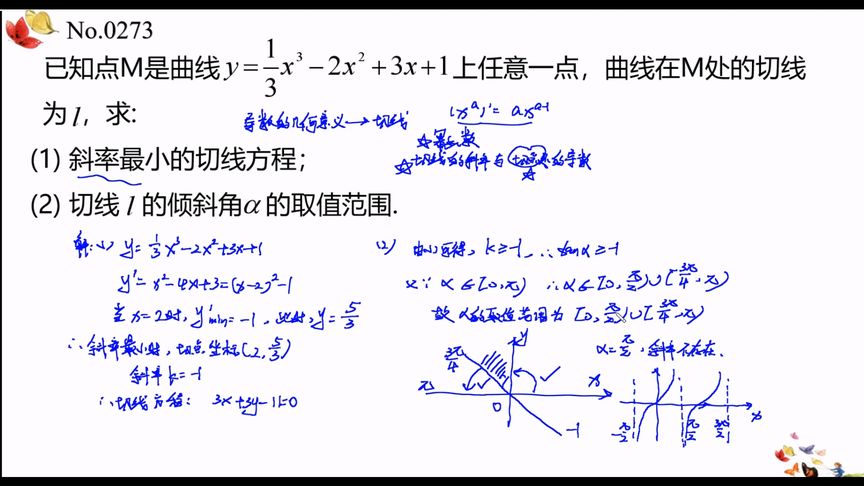 No.0273
已知点M是曲线 y = 1/3 x³ − 2x² + 3x + 1 上任意一点，曲线在M处的切线
为 l，求:
导数的几何意义 → 切线 (x^a)' = ax^(a-1)
☆幂函数
(1) 斜率最小的切线方程；
☆切线的斜率与切点处的导数
☆
(2) 切线 l 的倾斜角α的取值范围.
解:(1) y = 1/3 x³ − 2x² + 3x + 1
y' = x² − 4x + 3 = (x−2)² − 1
当 x = 2时, y'min = −1, 此时, y = 5/3
∴ 斜率最小时, 切点坐标(2, 5/3)
斜率 k = −1
∴ 切线方程: 3x + 3y − 11 = 0
(2) 由(1)可得, k ≥ −1, ∴ tanα ≥ −1
又∵ α ∈ [0, π) ∴ α ∈ [0, π/2) ∪ [3π/4, π)
故 α的取值范围为 [0, π/2) ∪ [3π/4, π)
α = π/2, 斜率不存在.
y
3π/4
π
x
0
−1
−π/2
π/2
3π/2
x